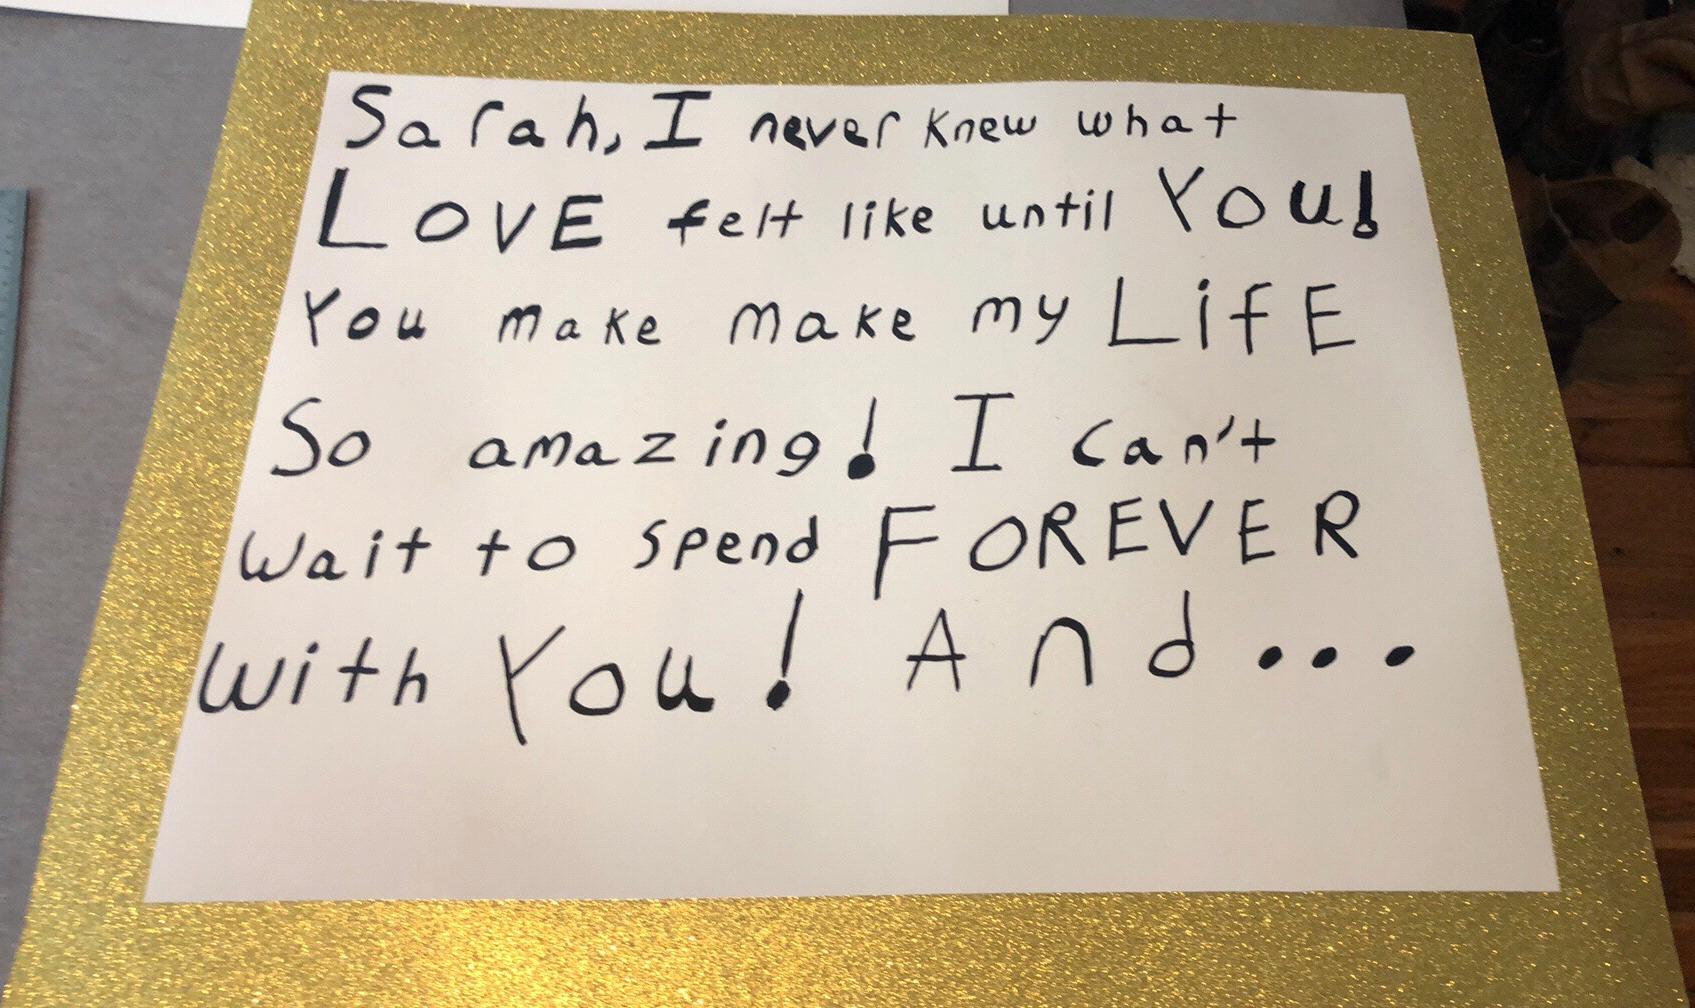 Sarah, I never knew what
LOVE felt like until YOU!
You make make my LifE
So amazing! I can't
Wait to spend FOREVER
With You! And...